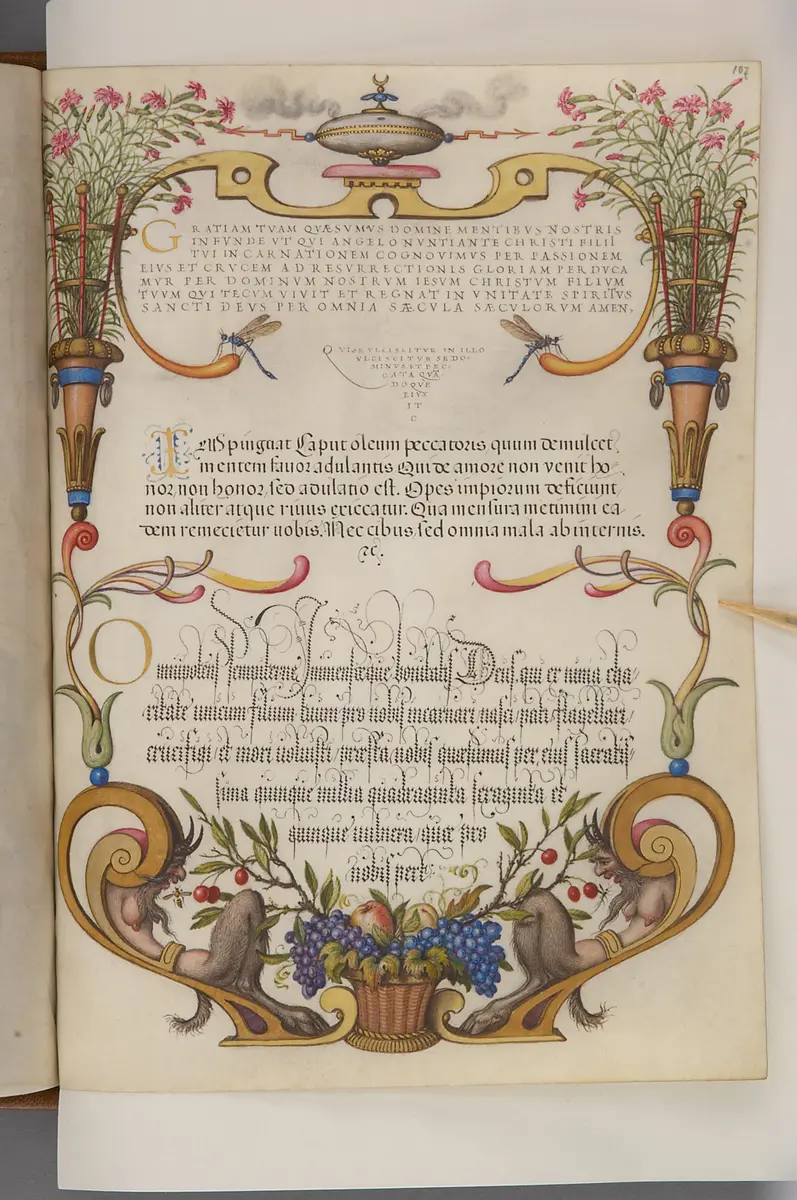 107
GRATIAM TVAM QVÆSVMVS DOMINE MENTIBVS NOSTRIS
INFVNDE VT QVI ANGELO NVNTIANTE CHRISTI FILII
TVI INCARNATIONEM COGNOVIMVS PER PASSIONEM
EIVS ET CRVCEM AD RESVRRECTIONIS GLORIAM PERDVCA
MVR PER DOMINVM NOSTRVM IESVM CHRISTVM FILIVM
TVVM QVI TECVM VIVIT ET REGNAT IN VNITATE SPIRITVS
SANCTI DEVS PER OMNIA SÆCVLA SÆCVLORVM AMEN,
QVI SE VLCISCITVR IN ILLO
VLCISCITVR SE DO-
MINVS ET PEC-
CATA QVÃ
DOQVE
EIVS
IT
C
pinguat Caput oleum peccatoris quum demulcet
mentem fauor adulantis Qui de amore non venit ho
nor, non honor, sed adulatio est. Opes impiorum deficiunt
non aliter atque riuus exiccatur. Qua mensura metimini ea
dem remecietur uobis. Nec cibus sed omnia mala ab internis.
&c.
Omnipotens sempiterne Immenseque bonitatis Deus, qui ex nimia cha/
ritate unicum filium tuum pro nobis incarnari, nasci, pati, flagellari,
crucifigi, et mori uoluisti, præsta nobis quæsumus per eius sacratis/
sima quinque millia quadraginta sexaginta et
quinque, uulnera, quæ pro
nobis